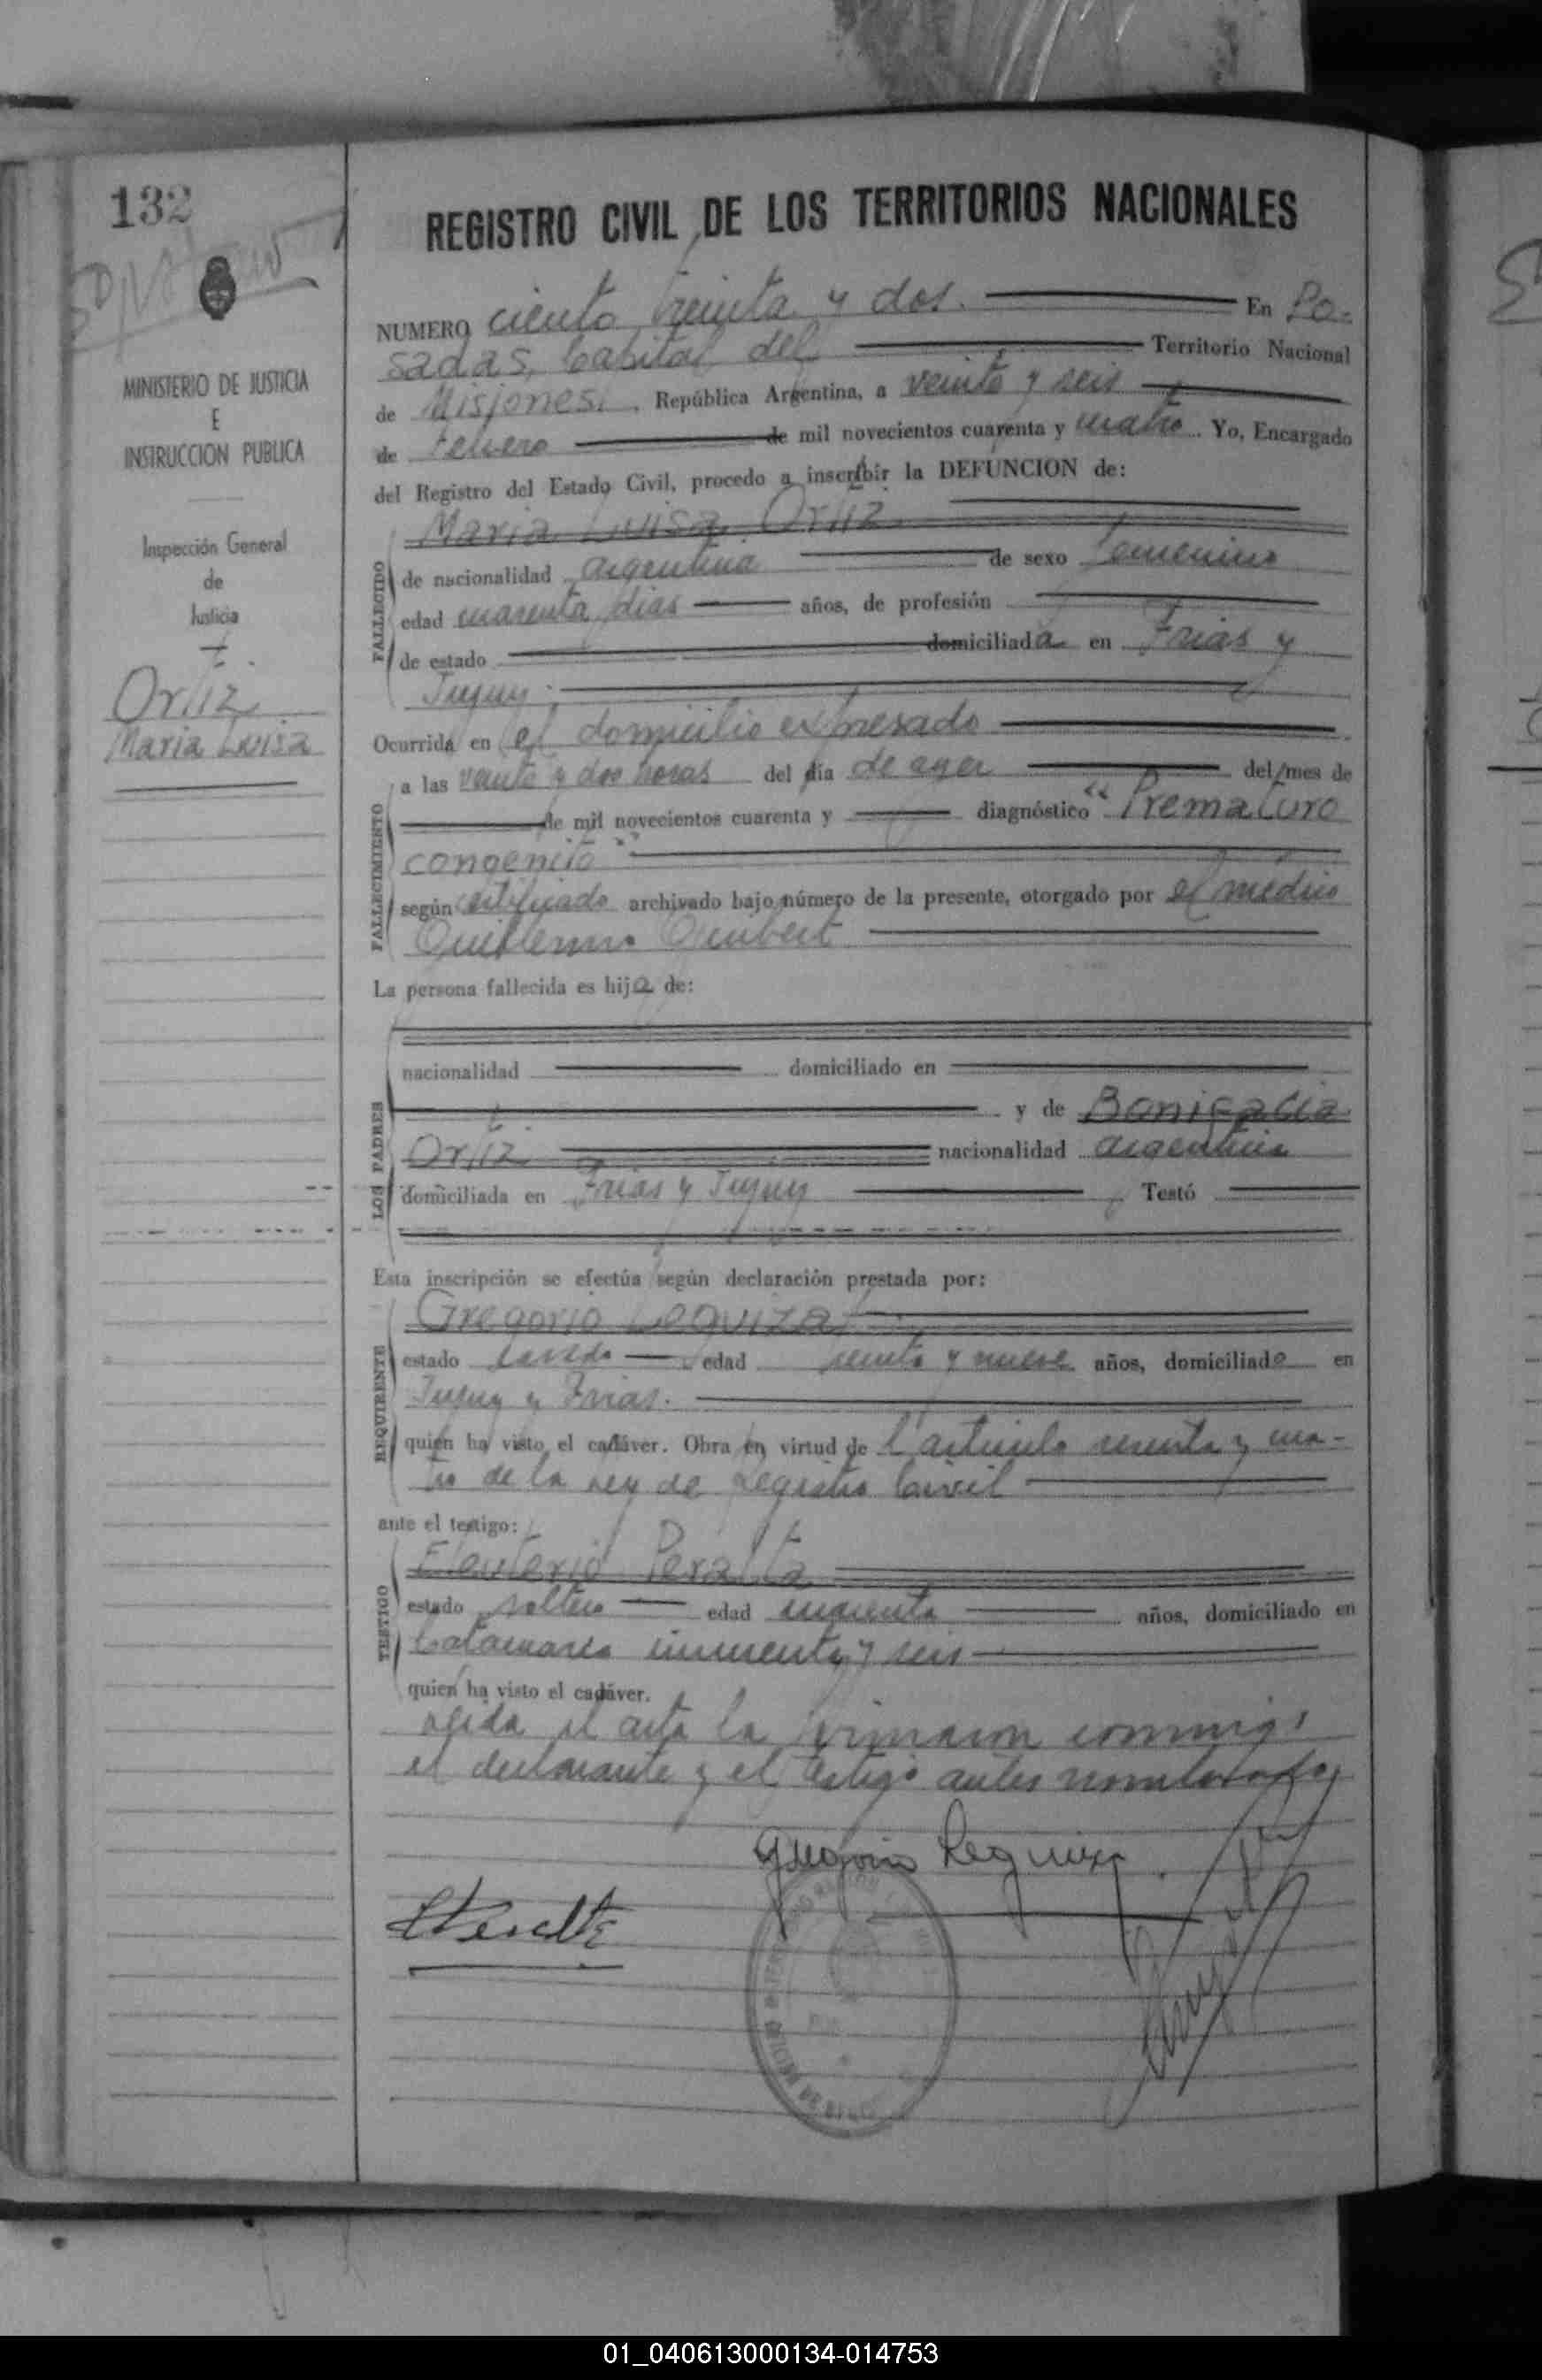 132
REGISTRO CIVIL DE LOS TERRITORIOS NACIONALES
NUMERO ciento treinta y dos. En Po-
sadas, Capital del Territorio Nacional
de Misiones, República Argentina, a veinte y seis
de Febrero de mil novecientos cuarenta y cuatro. Yo, Encargado
del Registro del Estado Civil, procedo a inscribir la DEFUNCION de:
MINISTERIO DE JUSTICIA
E
INSTRUCCION PUBLICA
Inspección General
de
Justicia
Ortiz
Maria Luisa
FALLECIDO
Maria Luisa Ortiz
de nacionalidad argentina de sexo femenino
edad cuarenta dias años, de profesión
de estado domiciliada en Frias y
Jujuy
Ocurrida en el domicilio expresado
FALLECIMIENTO
a las veinte y dos horas del día de ayer del mes de
de mil novecientos cuarenta y diagnóstico "Prematuro
congenito"
según certificado archivado bajo número de la presente, otorgado por el médico
Guillermo
La persona fallecida es hija de:
LOS PADRES
nacionalidad domiciliado en
y de Bonifacia
Ortiz nacionalidad argentina
domiciliada en Frias y Jujuy Testó
Esta inscripción se efectúa según declaración prestada por:
REQUIRENTE
Gregorio Leguiza
estado casado edad treinta y nueve años, domiciliado en
Jujuy y Frias.
quien ha visto el cadáver. Obra en virtud de l'articulo sesenta y cua-
tro de la ley de Registro Civil
ante el testigo:
TESTIGO
Eleuterio Peralta
estado soltero edad cuarenta años, domiciliado en
Catamarca cincuenta y seis
quien ha visto el cadáver.
Leida el acta la firmaron conmigo
el declarante y el testigo antes nombrados
Gregorio Leguiza
E Peralta
01_040613000134-014753